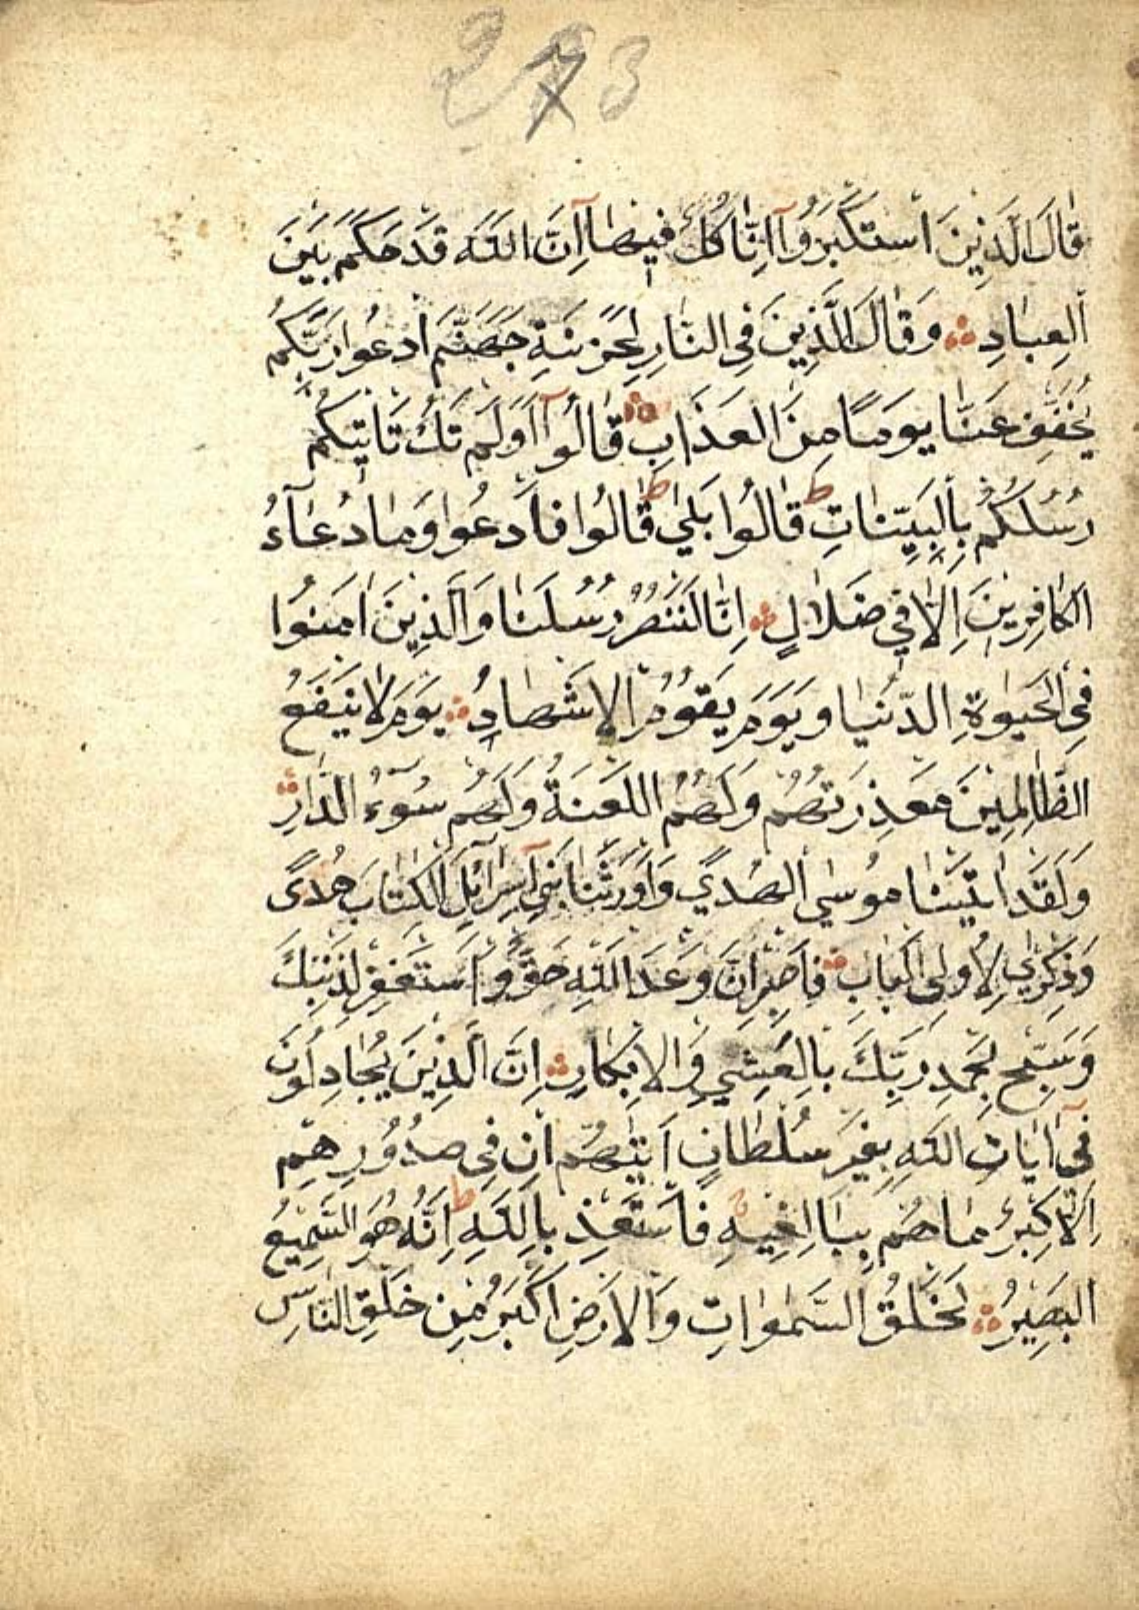 273
قَالَ الَّذِينَ اسْتَكْبَرُوآ اِنَّا كُلٌّ فِيهَآ اِنَّ اللّٰهَ قَدْ حَكَمَ بَيْنَ
الْعِبَادِ وَقَالَ الَّذِينَ فِي النَّارِ لِخَزَنَةِ جَهَنَّمَ ادْعُوا رَبَّكُمْ
يُخَفِّفْ عَنَّا يَوْمًا مِنَ الْعَذَابِ قَالُوآ اَوَلَمْ تَكُ تَاْتِيكُمْ
رُسُلُكُمْ بِالْبَيِّنَاتِ ط قَالُوا بَلٰي ط قَالُوا فَادْعُوا وَمَا دُعَآءُ
الْكَافِرِينَ اِلَّا فِي ضَلَالٍ اِنَّا لَنَنْصُرُ رُسُلَنَا وَالَّذِينَ اٰمَنُوا
فِي الْحَيٰوةِ الدُّنْيَا وَيَوْمَ يَقُومُ الْاَشْهَادُ يَوْمَ لَا يَنْفَعُ
الظَّالِمِينَ مَعْذِرَتُهُمْ وَلَهُمُ اللَّعْنَةُ وَلَهُمْ سُوٓءُ الدَّارِ
وَلَقَدْ اٰتَيْنَا مُوسٰي الْهُدٰي وَاَوْرَثْنَا بَنِيٓ اِسْرَآئِلَ الْكِتَابَ هُدًى
وَذِكْرٰي لِاُولِي الْبَابِ فَاصْبِرْ اِنَّ وَعْدَ اللّٰهِ حَقٌّ وَاسْتَغْفِرْ لِذَنْبِكَ
وَسَبِّحْ بِحَمْدِ رَبِّكَ بِالْعَشِيِّ وَالْاِبْكَارِ اِنَّ الَّذِينَ يُجَادِلُونَ
فِيٓ اٰيَاتِ اللّٰهِ بِغَيْرِ سُلْطَانٍ اَتٰيهُمْ اِنْ فِي صُدُورِهِمْ
اِلَّا كِبْرٌ مَا هُمْ بِبَالِغِيهِ فَاسْتَعِذْ بِاللّٰهِ ط اِنَّهُ هُوَ السَّمِيعُ
الْبَصِيرُ لَخَلْقُ السَّمٰوَاتِ وَالْاَرْضِ اَكْبَرُ مِنْ خَلْقِ النَّاسِ